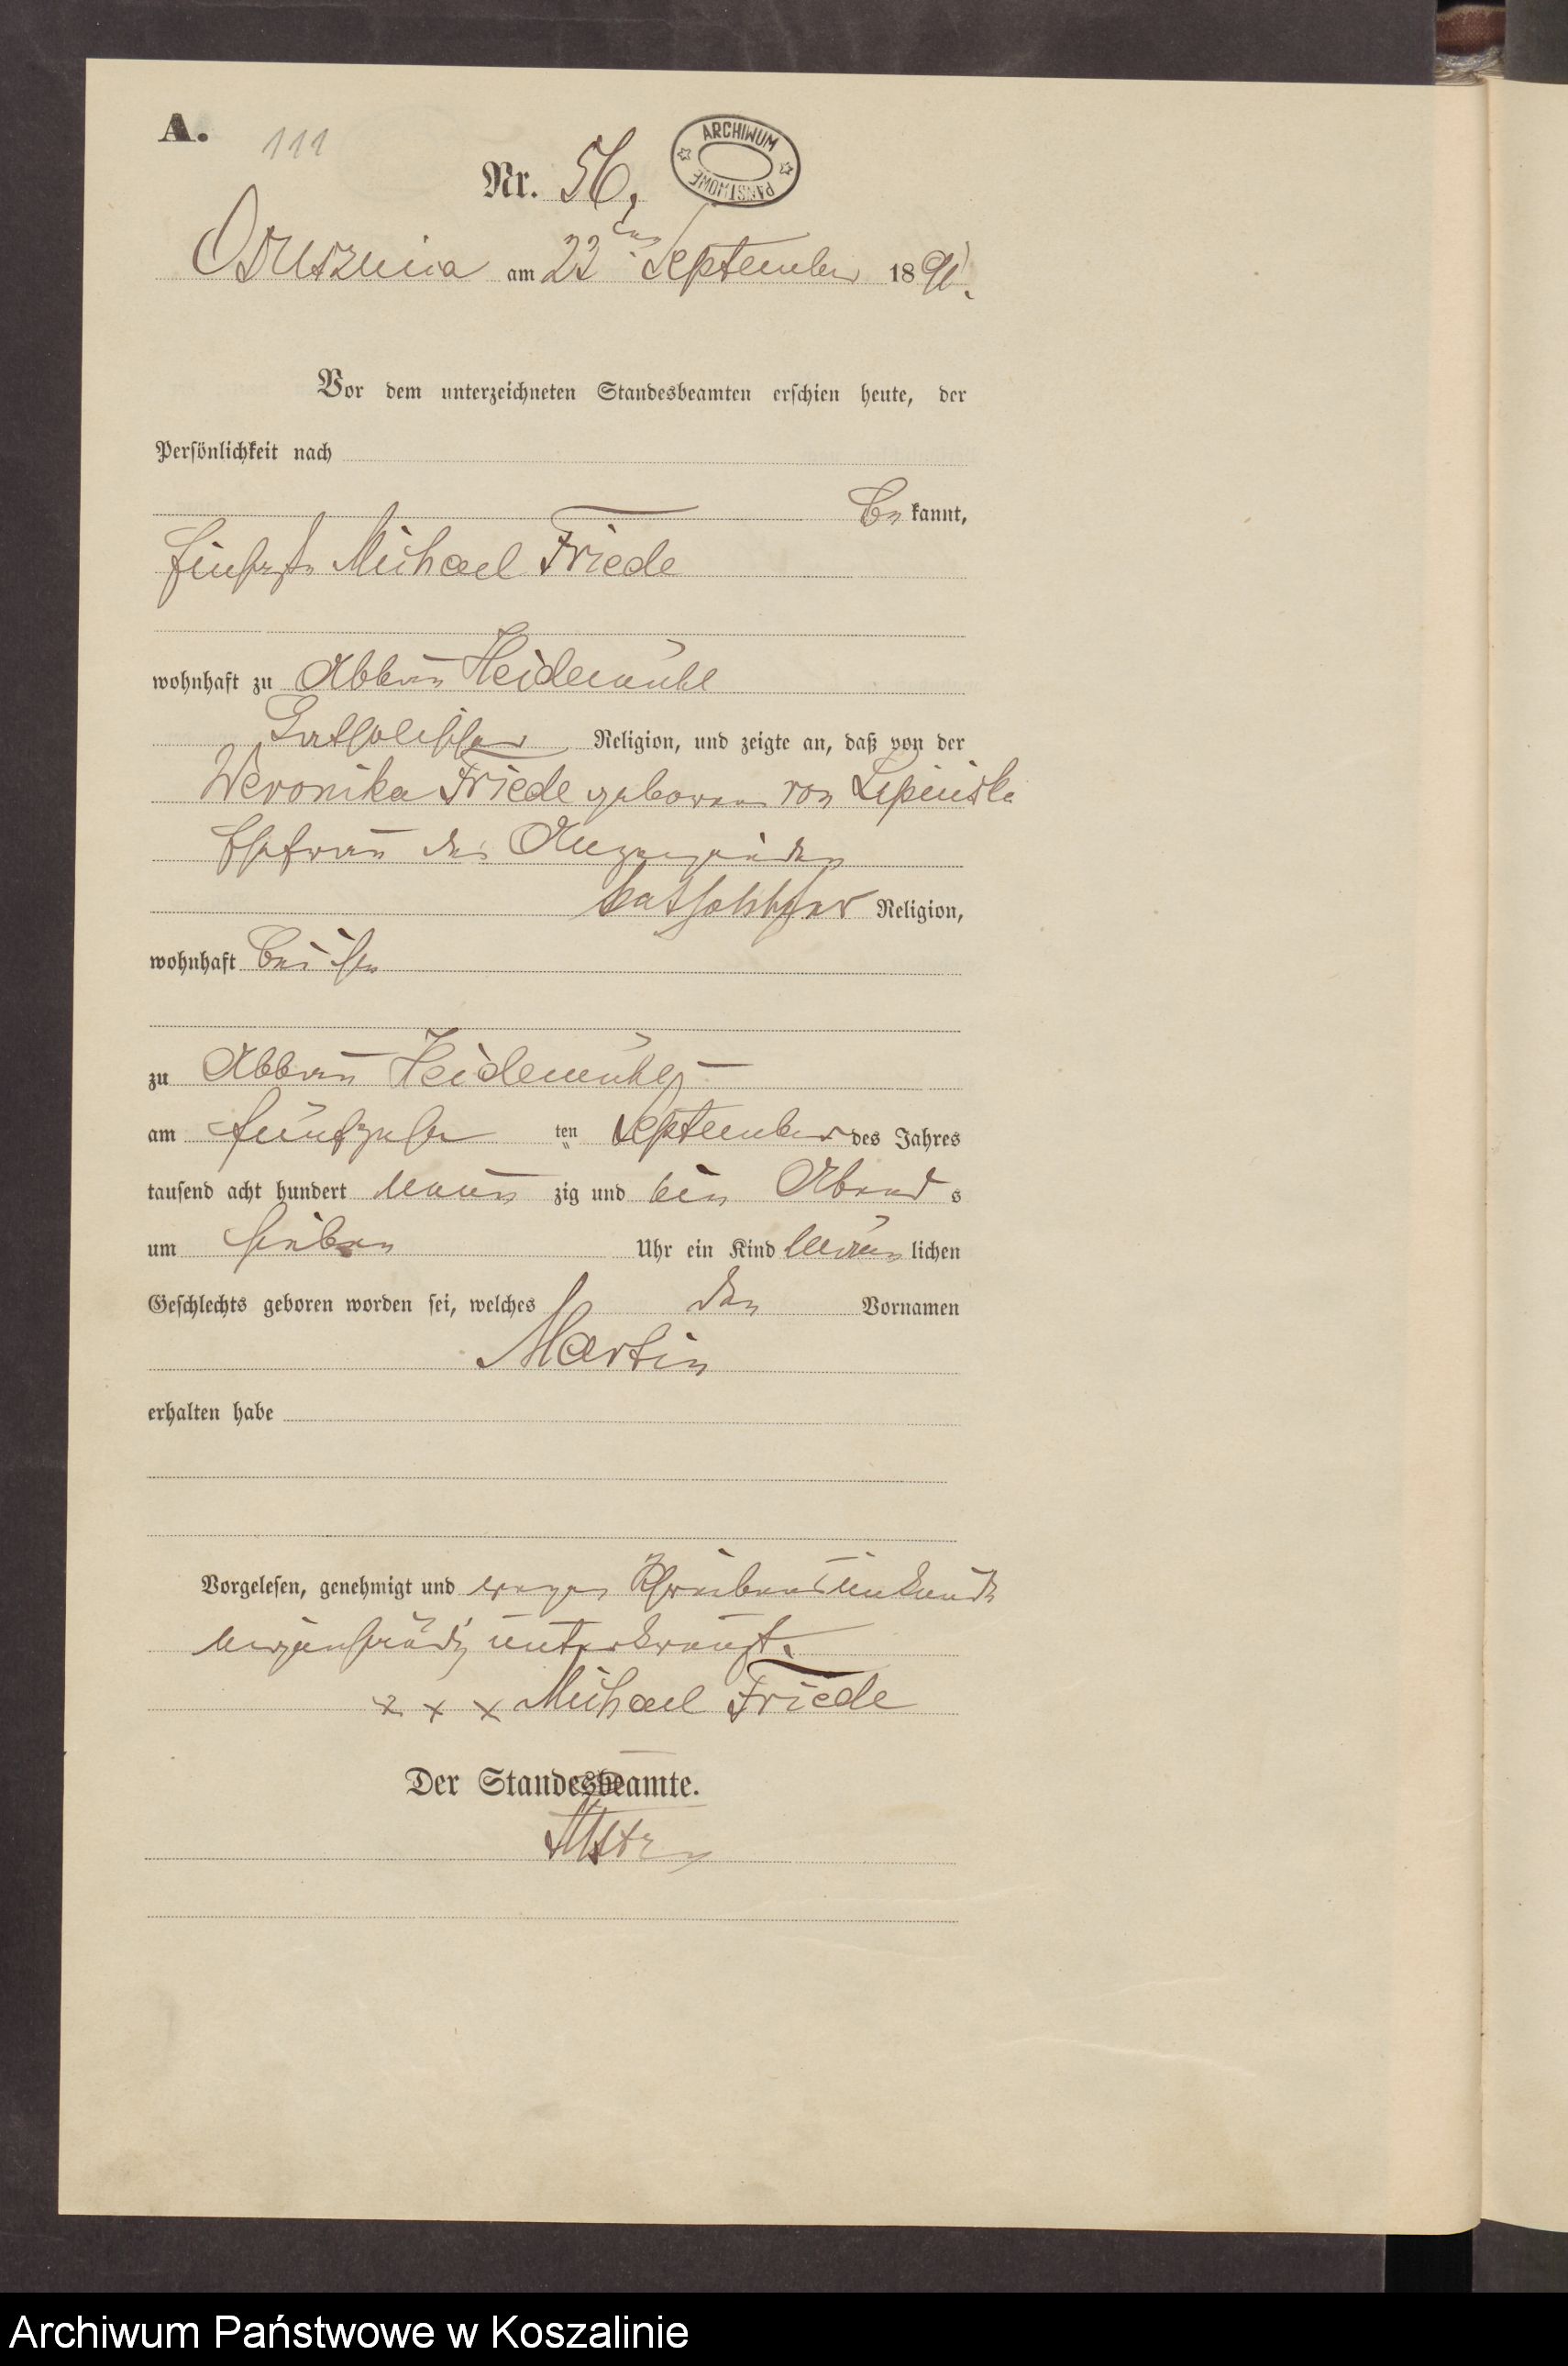 A. 111
Nr. 56,
ARCHIWUM PAŃSTWOWE
Osusznica am 22ten September 1891.
Vor dem unterzeichneten Standesbeamten erschien heute, der
Persönlichkeit nach
be kannt,
Michael Friede
wohnhaft zu Abbau Heidemühl
katholischer Religion, und zeigte an, daß von der
Weronika Friede geborene von Lipinska
Ehefrau des Anzeigenden
katholischer Religion,
wohnhaft bei ihm
zu Abbau Heidemühl
am fünfzehn ten September des Jahres
tausend acht hundert neun zig und ein Abend s
um sieben Uhr ein Kind männ lichen
Geschlechts geboren worden sei, welches den Vornamen
Martin
erhalten habe
Vorgelesen, genehmigt und wegen Schreibensunkunde
unterkreuzt.
x x x Michael Friede
Der Standesbeamte.
Archiwum Państwowe w Koszalinie